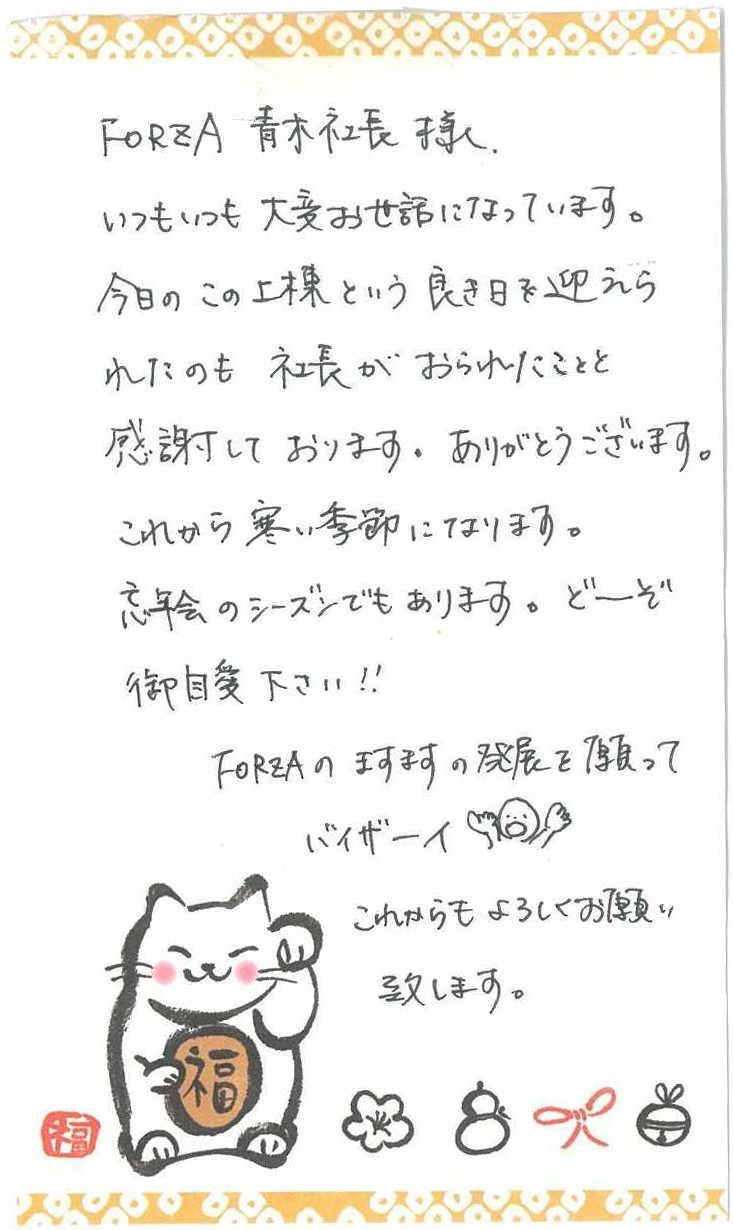 FORZA 青木社長 様、
いつもいつも 大変お世話になっています。
今日の この上棟という 良き日を迎えら
れたのも 社長が おられたことと
感謝して おります。ありがとうございます。
これから 寒い季節になります。
忘年会のシーズンでもあります。どーぞ
御自愛 下さい!!
FORZAの ますますの発展を願って
バイザーイ
これからもよろしくお願い
致します。
福
福